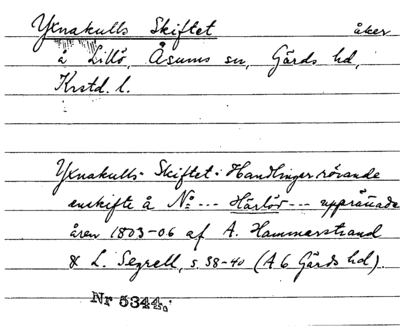 Yxnakulls Skiftet åker
å Lillö, Åsums sn, Gärds hd,
Krstd. l.
Yxnakulls-Skiftet: Handlingar rörande
enskifte å No --- Härlöv --- upprättade
åren 1803-06 af A. Hammarstrand
& L. Segrell, s. 38-40 (A 6 Gärds hd).
Nr 5344.